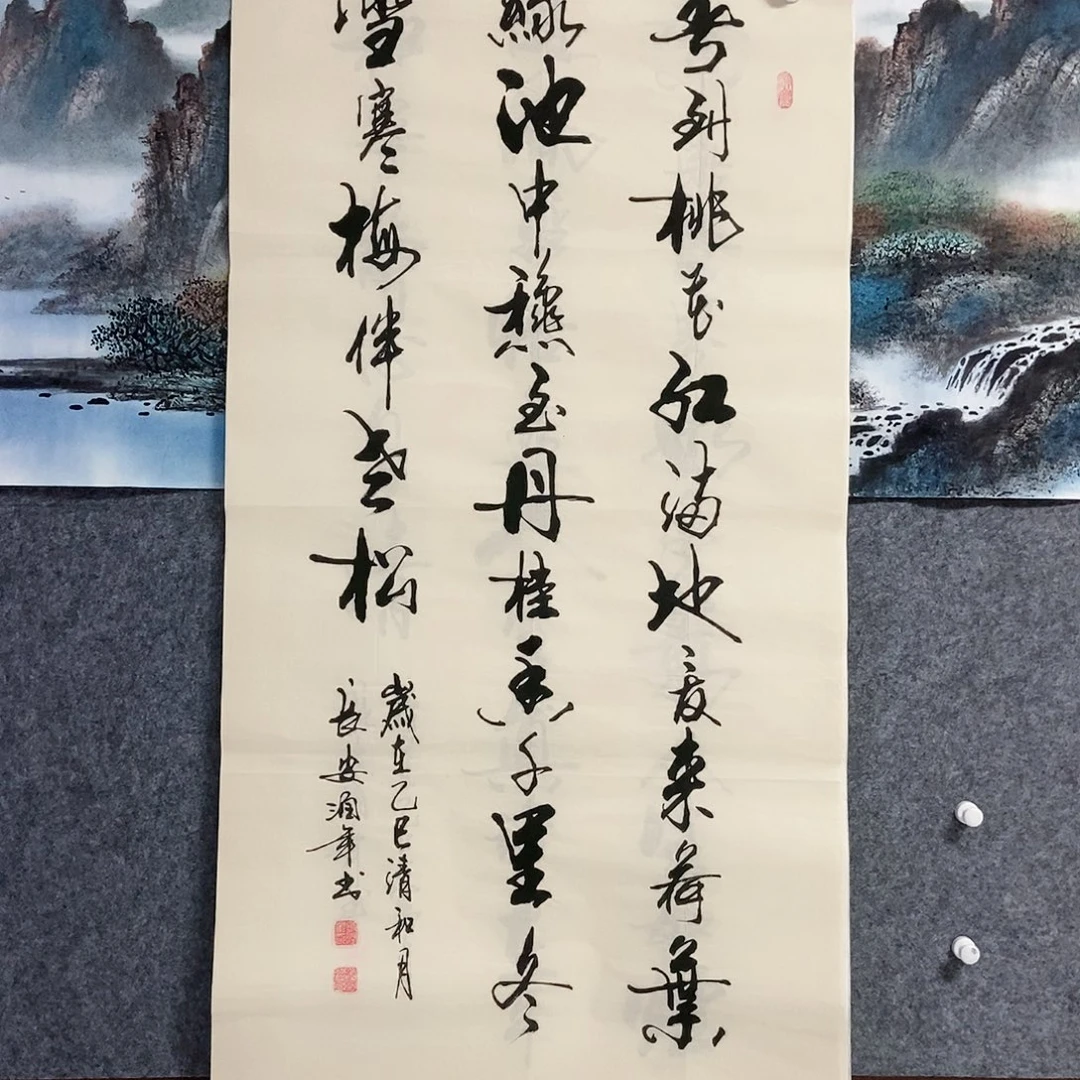 春到桃花红满地夏来荷葉
绿池中龝至丹桂香千里冬
雪寒梅伴老松
歲在乙巳清和月
长安润年书